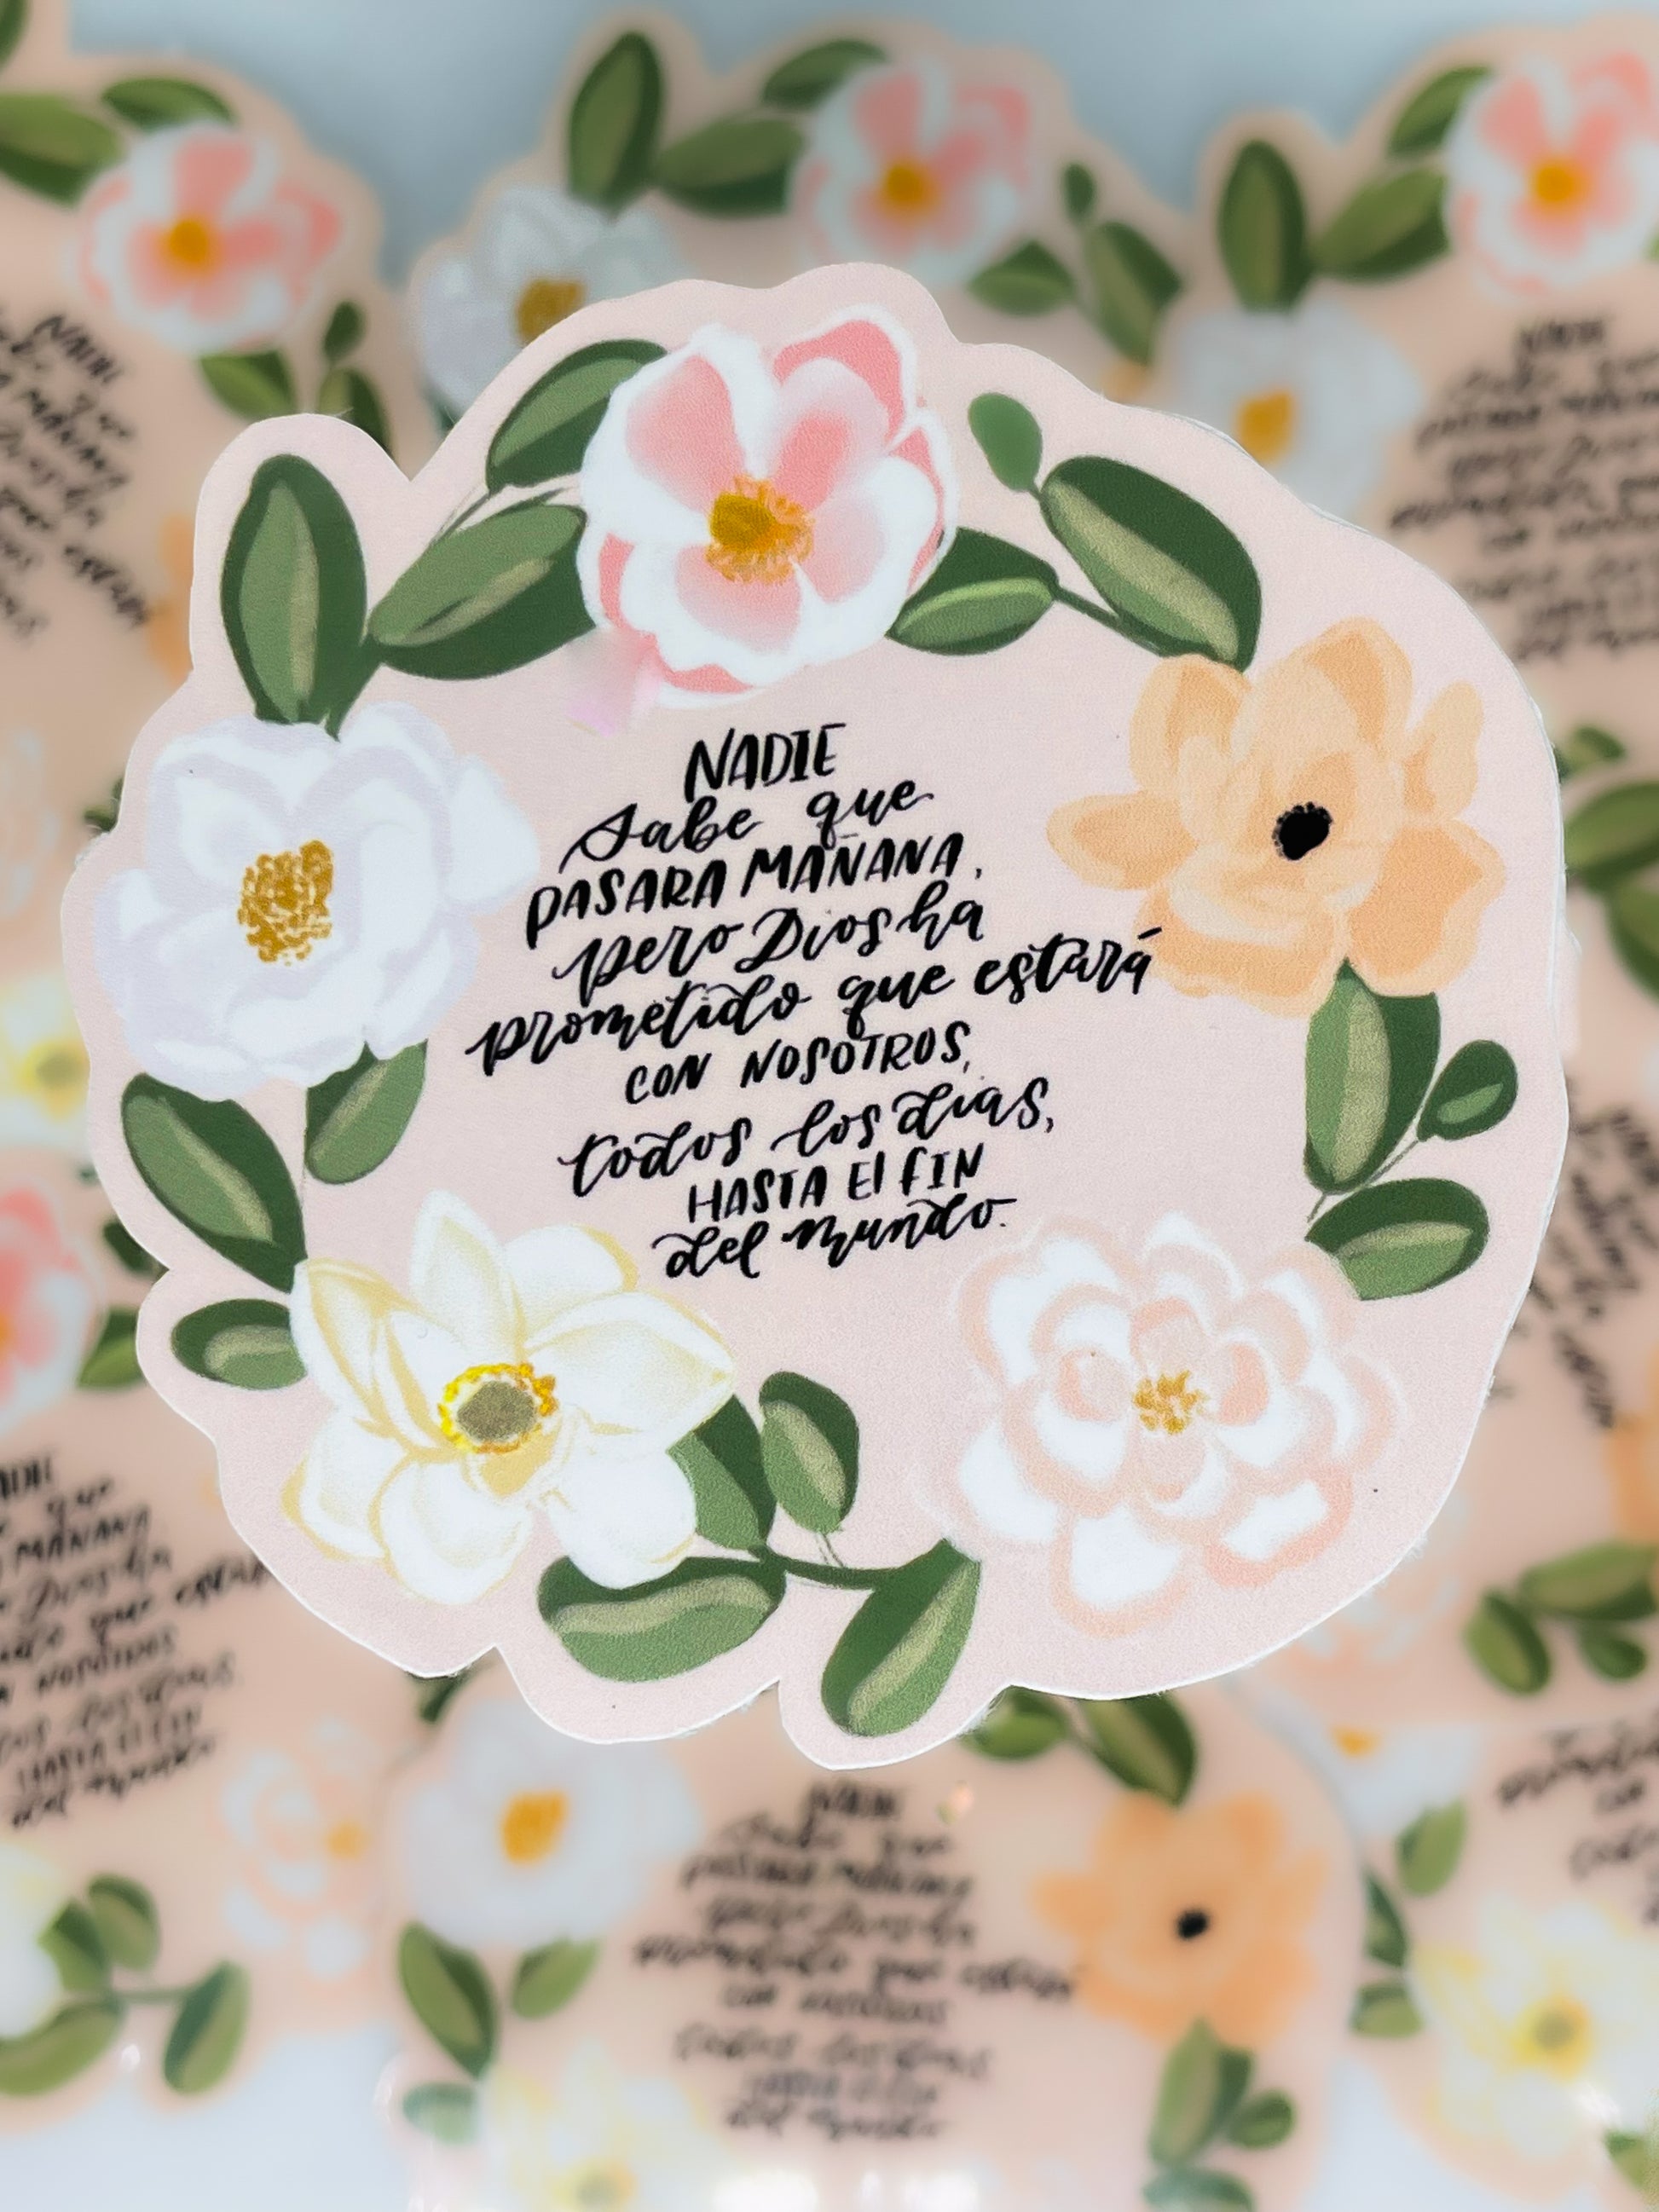 NADIE
sabe que
PASARA MAÑANA,
pero Dios ha
prometido que estará
CON NOSOTROS,
todos los dias,
HASTA El fIN
del mundo.